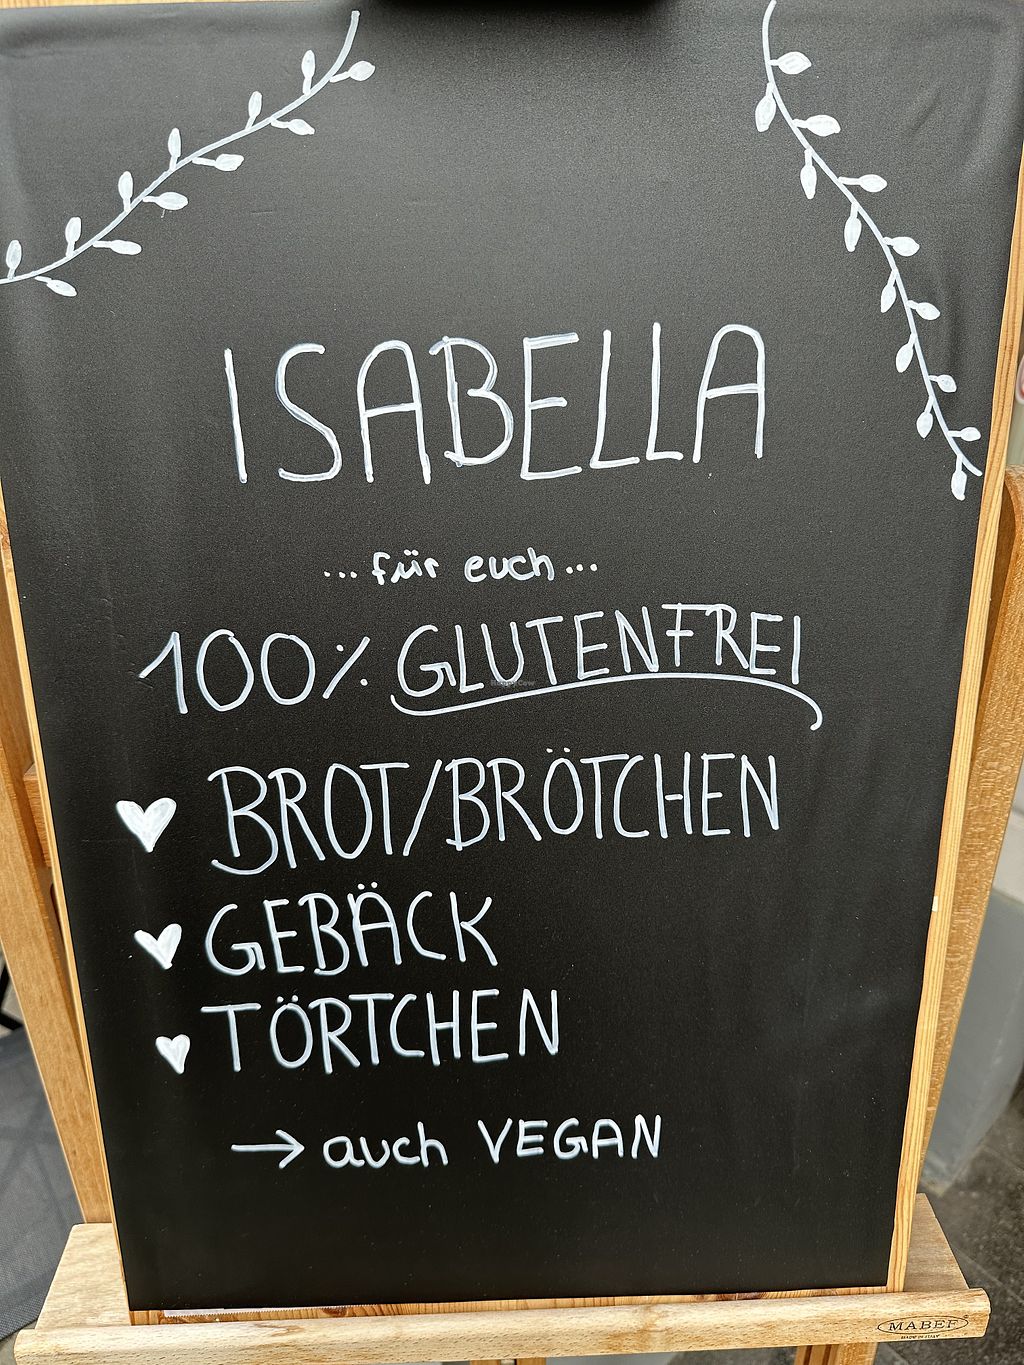 ISABELLA
... für euch ...
100% GLUTENFREI
BROT/BRÖTCHEN
GEBÄCK
TÖRTCHEN
→ auch VEGAN
MABEF
MADE IN ITALY